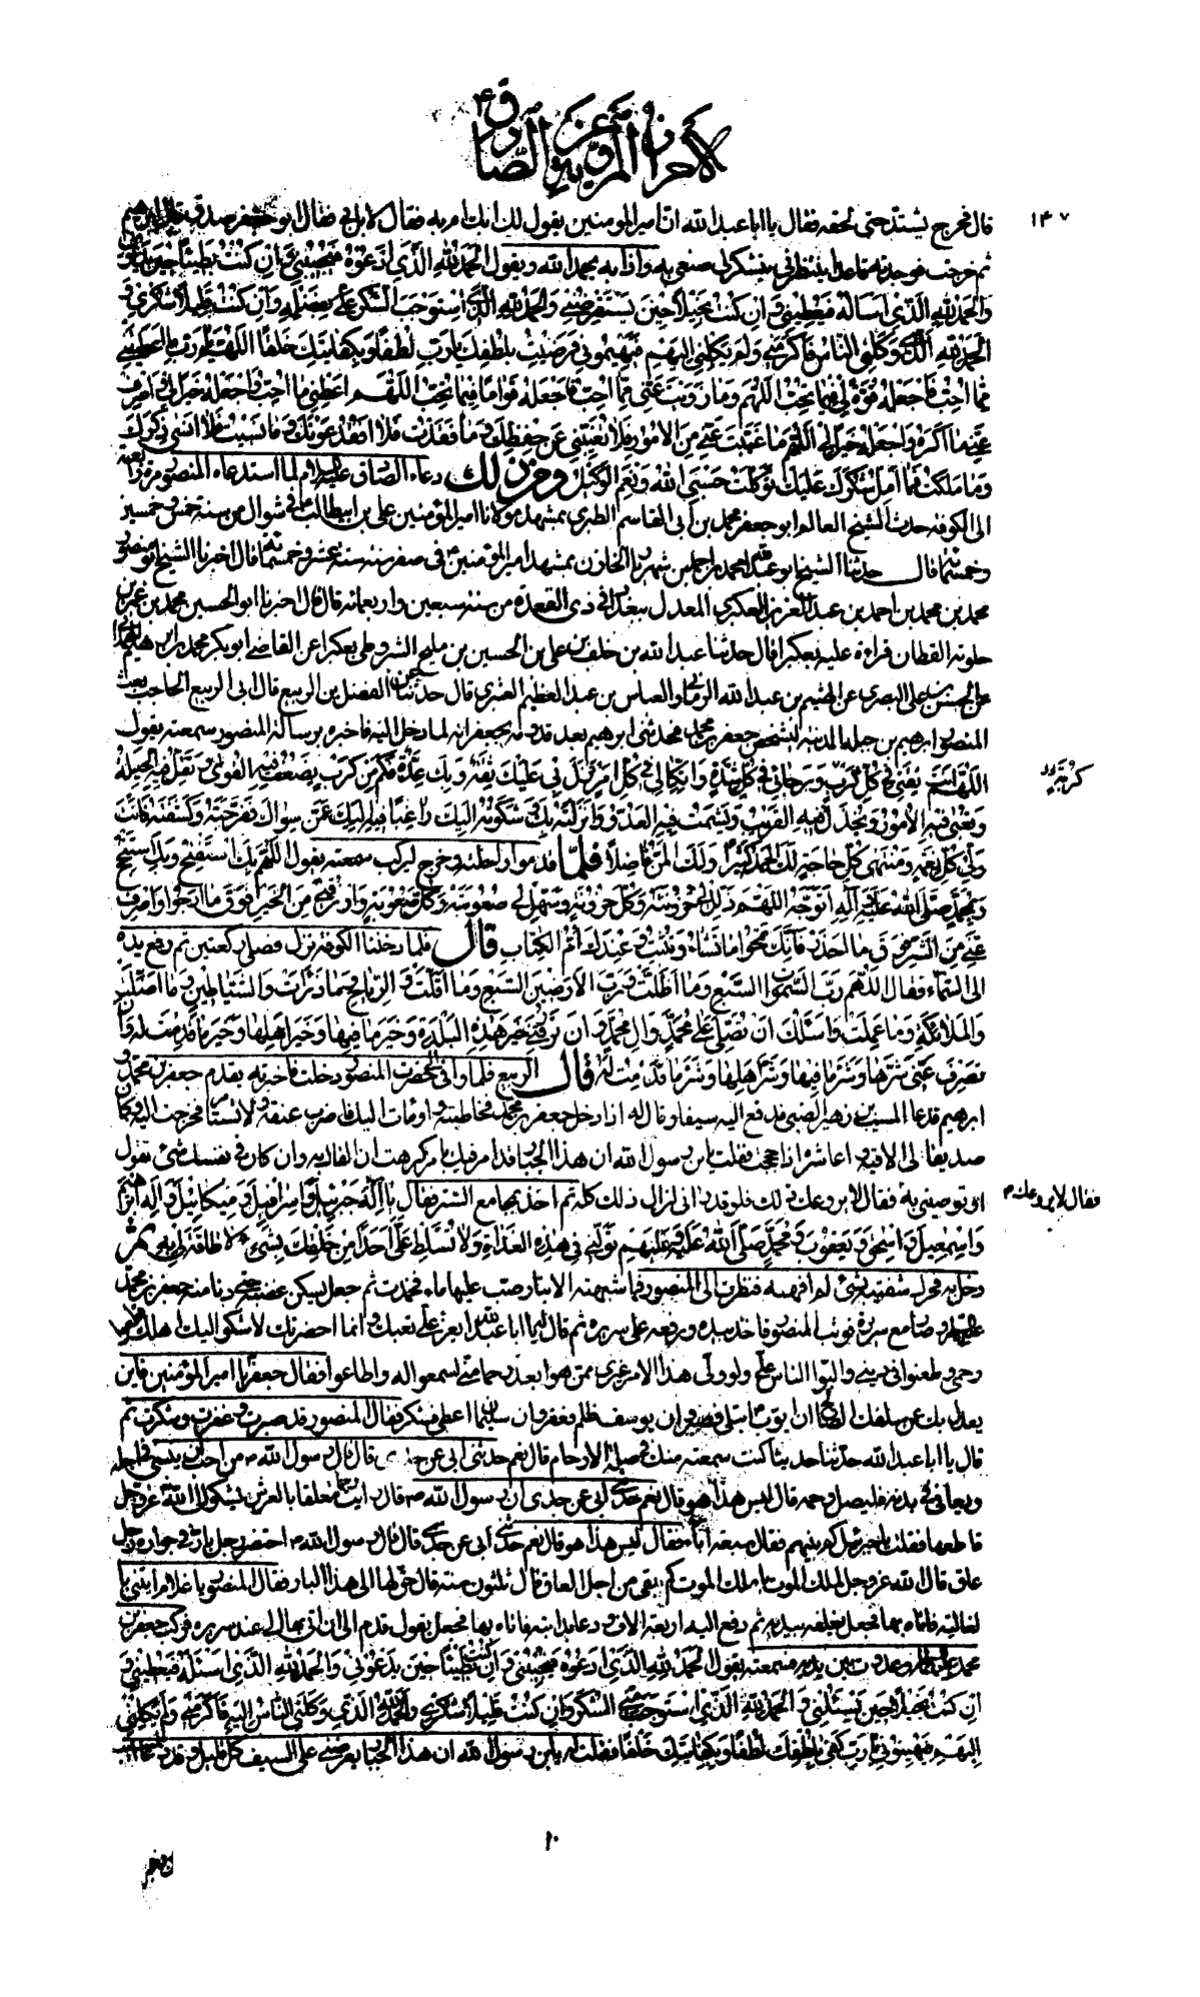 الأحراز المروية عن الصادق ع
١٤٧
قال فخرج يشتد حتى لحقه فقال يا ابا عبد الله ان امير المؤمنين يقول لك ابك امر به فقال لا بل ابي فقال ابو جعفر صدق قال ابرهيم
ثم خرجت فوجدته قاعدا ينتظرني يتشكر لي صنعي به واذا به يحمد الله ويقول الحمد لله الذي ادعوه فيجيبني وان كنت بطيئا حين يدعوني
والحمد لله الذي اسأله فيعطيني وان كنت بخيلا حين يستقرضني والحمد لله الذي استوجب الشكر علي بفضله وان كنت قليلا شكري
الحمد لله الذي وكلني الناس فاكرمني ولم يكلني اليهم فيهينوني فرضيت بلطفك يا رب لطفا وبكفايتك خلفا اللهم يا رب ما اعطيتني
مما احب فاجعله قوة لي فيما تحب اللهم وما زويت عني مما احب فاجعله قواما فيما تحب اللهم اعطني ما احب واجعله خيرا لي واصرف
عني ما اكره واجعله خيرا لي اللهم ما غيبت عني من الامور فلا تغيبني عن حفظك وما فقدت فلا افقد عونك وما نسيت فلا انسى ذكرك
وما مللت فما امل شكرك عليك توكلت حسبي الله ونعم الوكيل ومن ذلك دعاء الصادق عليه السلام لما استدعاه المنصور مرة رابعة
الى الكوفة حدث الشيخ العالم ابو جعفر محمد بن ابي القاسم الطبري بمشهد مولانا امير المؤمنين علي بن ابيطالب في شوال من سنة خمس وخمسين
وخمسمائة قال حدثنا الشيخ ابو عبد الله محمد بن احمد بن شهريار الخازن بمشهد امير المؤمنين في صفر سنة ستة عشر وخمسمائة قال اخبرنا الشيخ ابو منصور
محمد بن محمد بن احمد بن عبد العزيز العكبري المعدل ببغداد في ذي القعدة من سنة سبعين واربعمائة قال قال اخبرنا ابو الحسين محمد بن عمر بن
حلويه القطان قراءة عليه بعكبرا قال حدثنا عبد الله بن خلف بن علي بن الحسين بن مليح الشروطي بعكبرا عن القاضي ابو بكر محمد بن ابرهيم
عن الحسين بن علي البصري عن الهيثم بن عبد الله الرماني والعباس بن عبد العظيم العنبري قال حدثنا الفضل بن الربيع قال ابي الربيع الحاجب بعث
المنصور ابرهيم بن جبلة المدينة ليشخص جعفر بن محمد فحدثني ابرهيم بعد قدومه بجعفر انه لما دخل اليه فاخبره برسالة المنصور سمعته يقول
اللهم انت ثقتي في كل كرب ورجائي في كل شدة واتكالي في كل امر نزل بي عليك ثقة وبك عدة فكم من كرب يضعف فيه القوى وتقل فيه الحيلة
كربة
وتعني فيه الامور ويخذل فيه القريب ويشمت فيه العدو وانزلته بك وشكوته اليك راغبا فيه اليك عمن سواك ففرجته وكشفته فانت
ولي كل نعمة ومنتهى كل حاجة لك الحمد كثيرا ولك المن فاضلا فلما قدموا راحلته وخرج ليركب سمعته يقول اللهم بك استفتح وبك استنجح
وبمحمد صلى الله عليه وآله اتوجه اللهم ذلل لي حزونته وكل حزونة وسهل لي صعوبته وكل صعوبة وارزقني من الخير فوق ما ارجو واصرف
عني من الشر فوق ما احذر فانك تمحوا ما تشاء وتثبت وعندك ام الكتاب قال فلما دخلنا الكوفة نزل فصلى ركعتين ثم رفع يده
الى السماء فقال اللهم رب السموات السبع وما اظلت ورب الارضين السبع وما اقلت والرياح وما ذرات والشياطين وما اضلت
والملائكة وما عملت واسئلك ان تصلي على محمد وال محمد وان ترزقني خير هذه البلدة وخير ما فيها وخير اهلها وخير ما قدمت له وان
تصرف عني شرها وشر ما فيها وشر اهلها وشر ما قدمت له قال الربيع فلما وافى الى حضرت المنصور دخلت فاخبرته بقدوم جعفر بن محمد و
ابرهيم فدعا المسيب بن زهير الضبي فدفع اليه سيفا وقال له اذا دخل جعفر بن محمد فخاطبته واومات اليك فاضرب عنقه ولا تستامر فخرجت اليه وكان
صديقا لي الاقيه واعاشره اذا حججت فقلت يابن رسول الله ان هذا الجبار قد امر فيك بامر كرهت ان القاك به وان كان في نفسك شئ تقول
او توصيني به فقال لا يروعك ذلك فلو قد راني لزال ذلك كله ثم اخذ بمجامع الستر فقال يا اله جبرئيل واسرافيل وميكائيل واله ابرهيم
فقال لا يروعك
واسمعيل واسحق ويعقوب ومحمد صلى الله عليه وعليهم تولني في هذه الغداة ولا تسلط علي احدا من خلقك بشئ لا طاقة لي به ثم
دخل به فحرك شفتيه بشئ لم افهمه فنظرت الى المنصور فما شبهته الا بنار صب عليها ماء فخمدت ثم جعل يسكن غضبه حتى دنا منه جعفر بن محمد
عليهما وصار مع سريره فوثب المنصور فاخذ بيده ورفعه على سريره ثم قال له يا ابا عبد الله يعز علي تعبك وانما احضرتك لاشكو اليك اهلك قطعوا
رحمي وطعنوا في ديني والبوا الناس علي ولو ولي هذا الامر غيري ممن هو ابعد رحما مني لسمعوا له واطاعوا فقال جعفر يا امير المؤمنين فاين
يعدل بك عن سلفك الصالح ان ايوب ابتلي فصبر وان يوسف ظلم فغفر وان سليمان اعطي فشكر فقال المنصور قد صبرت وغفرت وشكرت ثم
قال يا ابا عبد الله حدثنا حديثا كنت سمعته منك في صلة الارحام قال نعم حدثني ابي عن جدي قال قال رسول الله من احب ان ينسى في اجله
ويعافى في بدنه فليصل رحمه قال ليس هذا هو قال نعم حدثني ابي عن جدي ان رسول الله قال رايت رحما معلقا بالعرش يشكو الى الله عز وجل
قاطعها فقلت يا جبرئيل كم بينهم فقال سبعة اباء فقال ليس هذا هو قال نعم حدثني ابي عن جدي قال قال رسول الله احتضر رجل بار في جواره رجل
عاق قال الله عز وجل لملك الموت يا ملك الموت كم بقي من اجل العاق قال ثلثون سنة قال حولها الى هذا البار فقال المنصور يا غلام ايتني با
لغالية فاتاه بها فجعل يغلفه بيديه ثم دفع اليه اربعة الاف ودعا بدابته فاتاه بها فجعل يقول قدم قدم الى ان اتى بها الى عند سريره فركب جعفر بن
محمد عليهما السلام وعدوت بين يديه فسمعته يقول الحمد لله الذي ادعوه فيجيبني وان كنت بطيئا حين يدعوني والحمد لله الذي اسئله فيعطيني و
ان كنت بخيلا حين يسئلني والحمد لله الذي استوجب مني الشكر وان كنت قليلا شكري والحمد لله الذي وكلني الناس اليه فاكرمني ولم يكلني
اليهم فيهينوني يا رب كفى بلطفك لطفا وبكفايتك خلفا فقلت له يابن رسول الله ان هذا الجبار يعرضني على السيف كل قليل وقد دعا
١٠